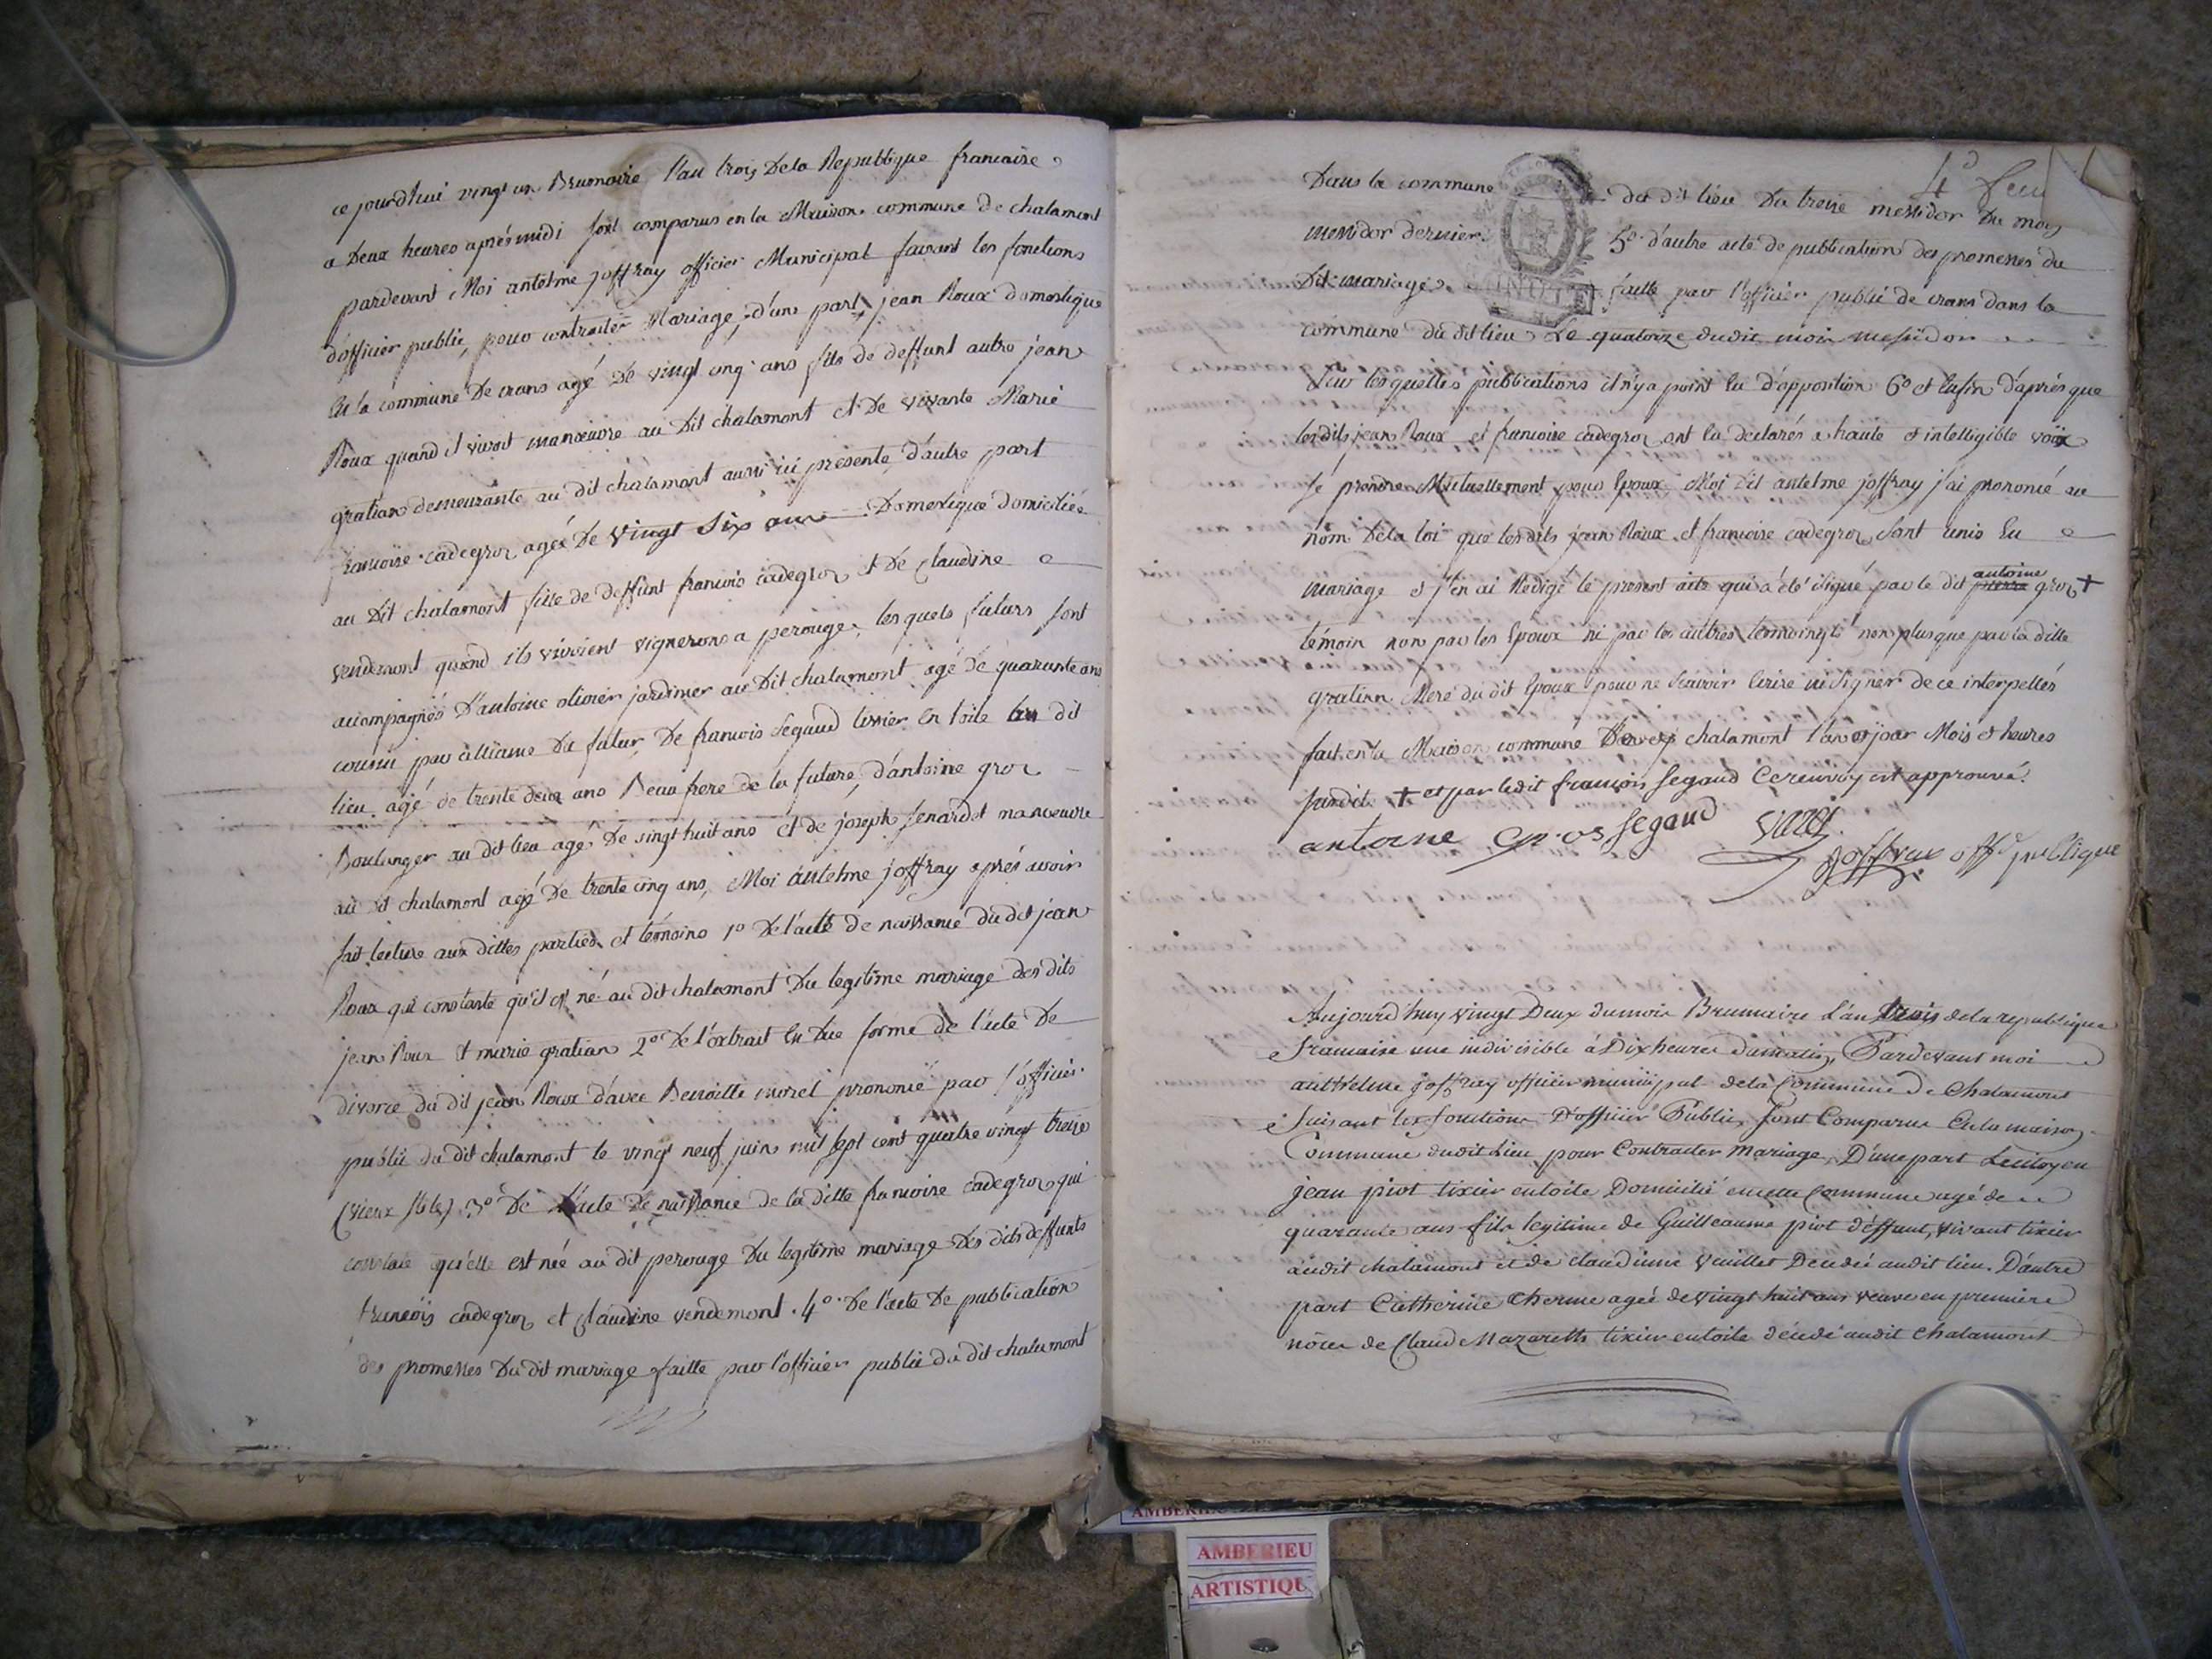 ce jourd'hui vingt un Brumaire l'an trois De la Republique francaise
a Deux heures aprés midi sont comparus en la Maison commune de chalamont
pardevant Moi antelme joffray officier Municipal faisant les fonctions
d'officier public, pour contracter Mariage, d'une part jean Roux domestique
En la commune De crans agé De vingt cinq ans fils de deffunt autre jean
Roux quand il vivoit manœuvre au Dit chalamont et De vivante Marie
gratian demeurante au dit chalamont aussi ici presente, d'autre part
francoise cadegros agée De vingt six ans Domestique domiciliée
au Dit chalamont fille de deffunt francois cadegros et De claudine
vendemont quand ils vivoient vignerons a perouge, les quels futurs sont
accompagnés D'antoine olivier jardinier au Dit chalamont agé De quarante ans
cousin par alliance Du futur, De francois segaud tissier En toile au dit
lieu agé de trente deux ans Beau frere de la future, d'antoine gros
Boulanger au dit lieu agé De vingt huit ans et de joseph fenardet manoeuvre
au dit chalamont agé De trente cinq ans, Moi antelme joffray aprés avoir
fait lecture aux dittes parties et temoins 1° De l'acte de naissance du dit jean
Roux qui constate qu'il est né au dit chalamont Du legitime mariage des dits
jean Roux et marie gratian 2° De l'extrait En Due forme de l'acte De
divorce du dit jean Roux d'avec Benoitte morel prononcé par l'officier
public du dit chalamont le vingt neuf juin mil sept cent quatre vingt treize
(vieux stile) 3° De l'acte De naissance de la ditte francoise cadegros qui
constate qu'elle est née au dit perouge Du legitime mariage Des dits deffunts
francois cadegros et claudine vendemont. 4° De l'acte De publication
des promesses Du dit mariage faitte par l'officier public du dit chalamont
4°
Dans la commune du dit lieu Du treize messidor Du mois
messidor dernier. 5° d'autre acte de publication des promesses du
Dit mariage faitte par l'officier public de crans dans la
commune du dit lieu Le quatorze dudit mois messidor
Sur lesquelles publications il n'y a point Eu d'opposition 6° et Enfin d'aprés que
lesdits jean Roux et francoise cadegros ont Eu declarés a haute et intelligible voix
se prendre Mutuellement pour Epoux Moi Dit antelme joffray j'ai prononcé au
nom De la loi que lesdits jean Roux et francoise cadegros sont unis En
mariage et j'en ai Redigé le present acte qui a été signé par le dit pierre antoine gros +
témoin non par les Epoux ni par les autres temoings non plus que par la ditte
gratian Mere du dit Epoux pour ne scavoir Ecrire ni signer de ce interpellés
fait en la Maison commune chalamont l'an et jour Mois et heures
susdit. + et par ledit françois segaud Ce renvoy est approuvé.
antoine gros segaud
joffray off publique
Aujourd'huy vingt Deux du mois Brumaire L'an trois de la republique
francaise une indivisible à Dix heures du matin, Pardevant moi
anthelme joffray officier municipal de la Commune De Chalamont
faisant les fonctions D'officier Public, sont Comparus En la maison
Commune dudit Lieu pour Contracter mariage, D'une part Le citoyen
jean pivot tixier en toile Domicilié en cette Commune agé de
quarante ans fils legitime de Guilleaume pivot déffunt, vivant tixier
audit chalamont et de claudine Vuillet Decedée audit lieu. D'autre
part Catherine Cherme agée de vingt huit ans veuve en première
nôces de Claude Mazareth tixier en toile décédé audit chalamont
AMBERIEU
AMBERIEU
ARTISTIQU